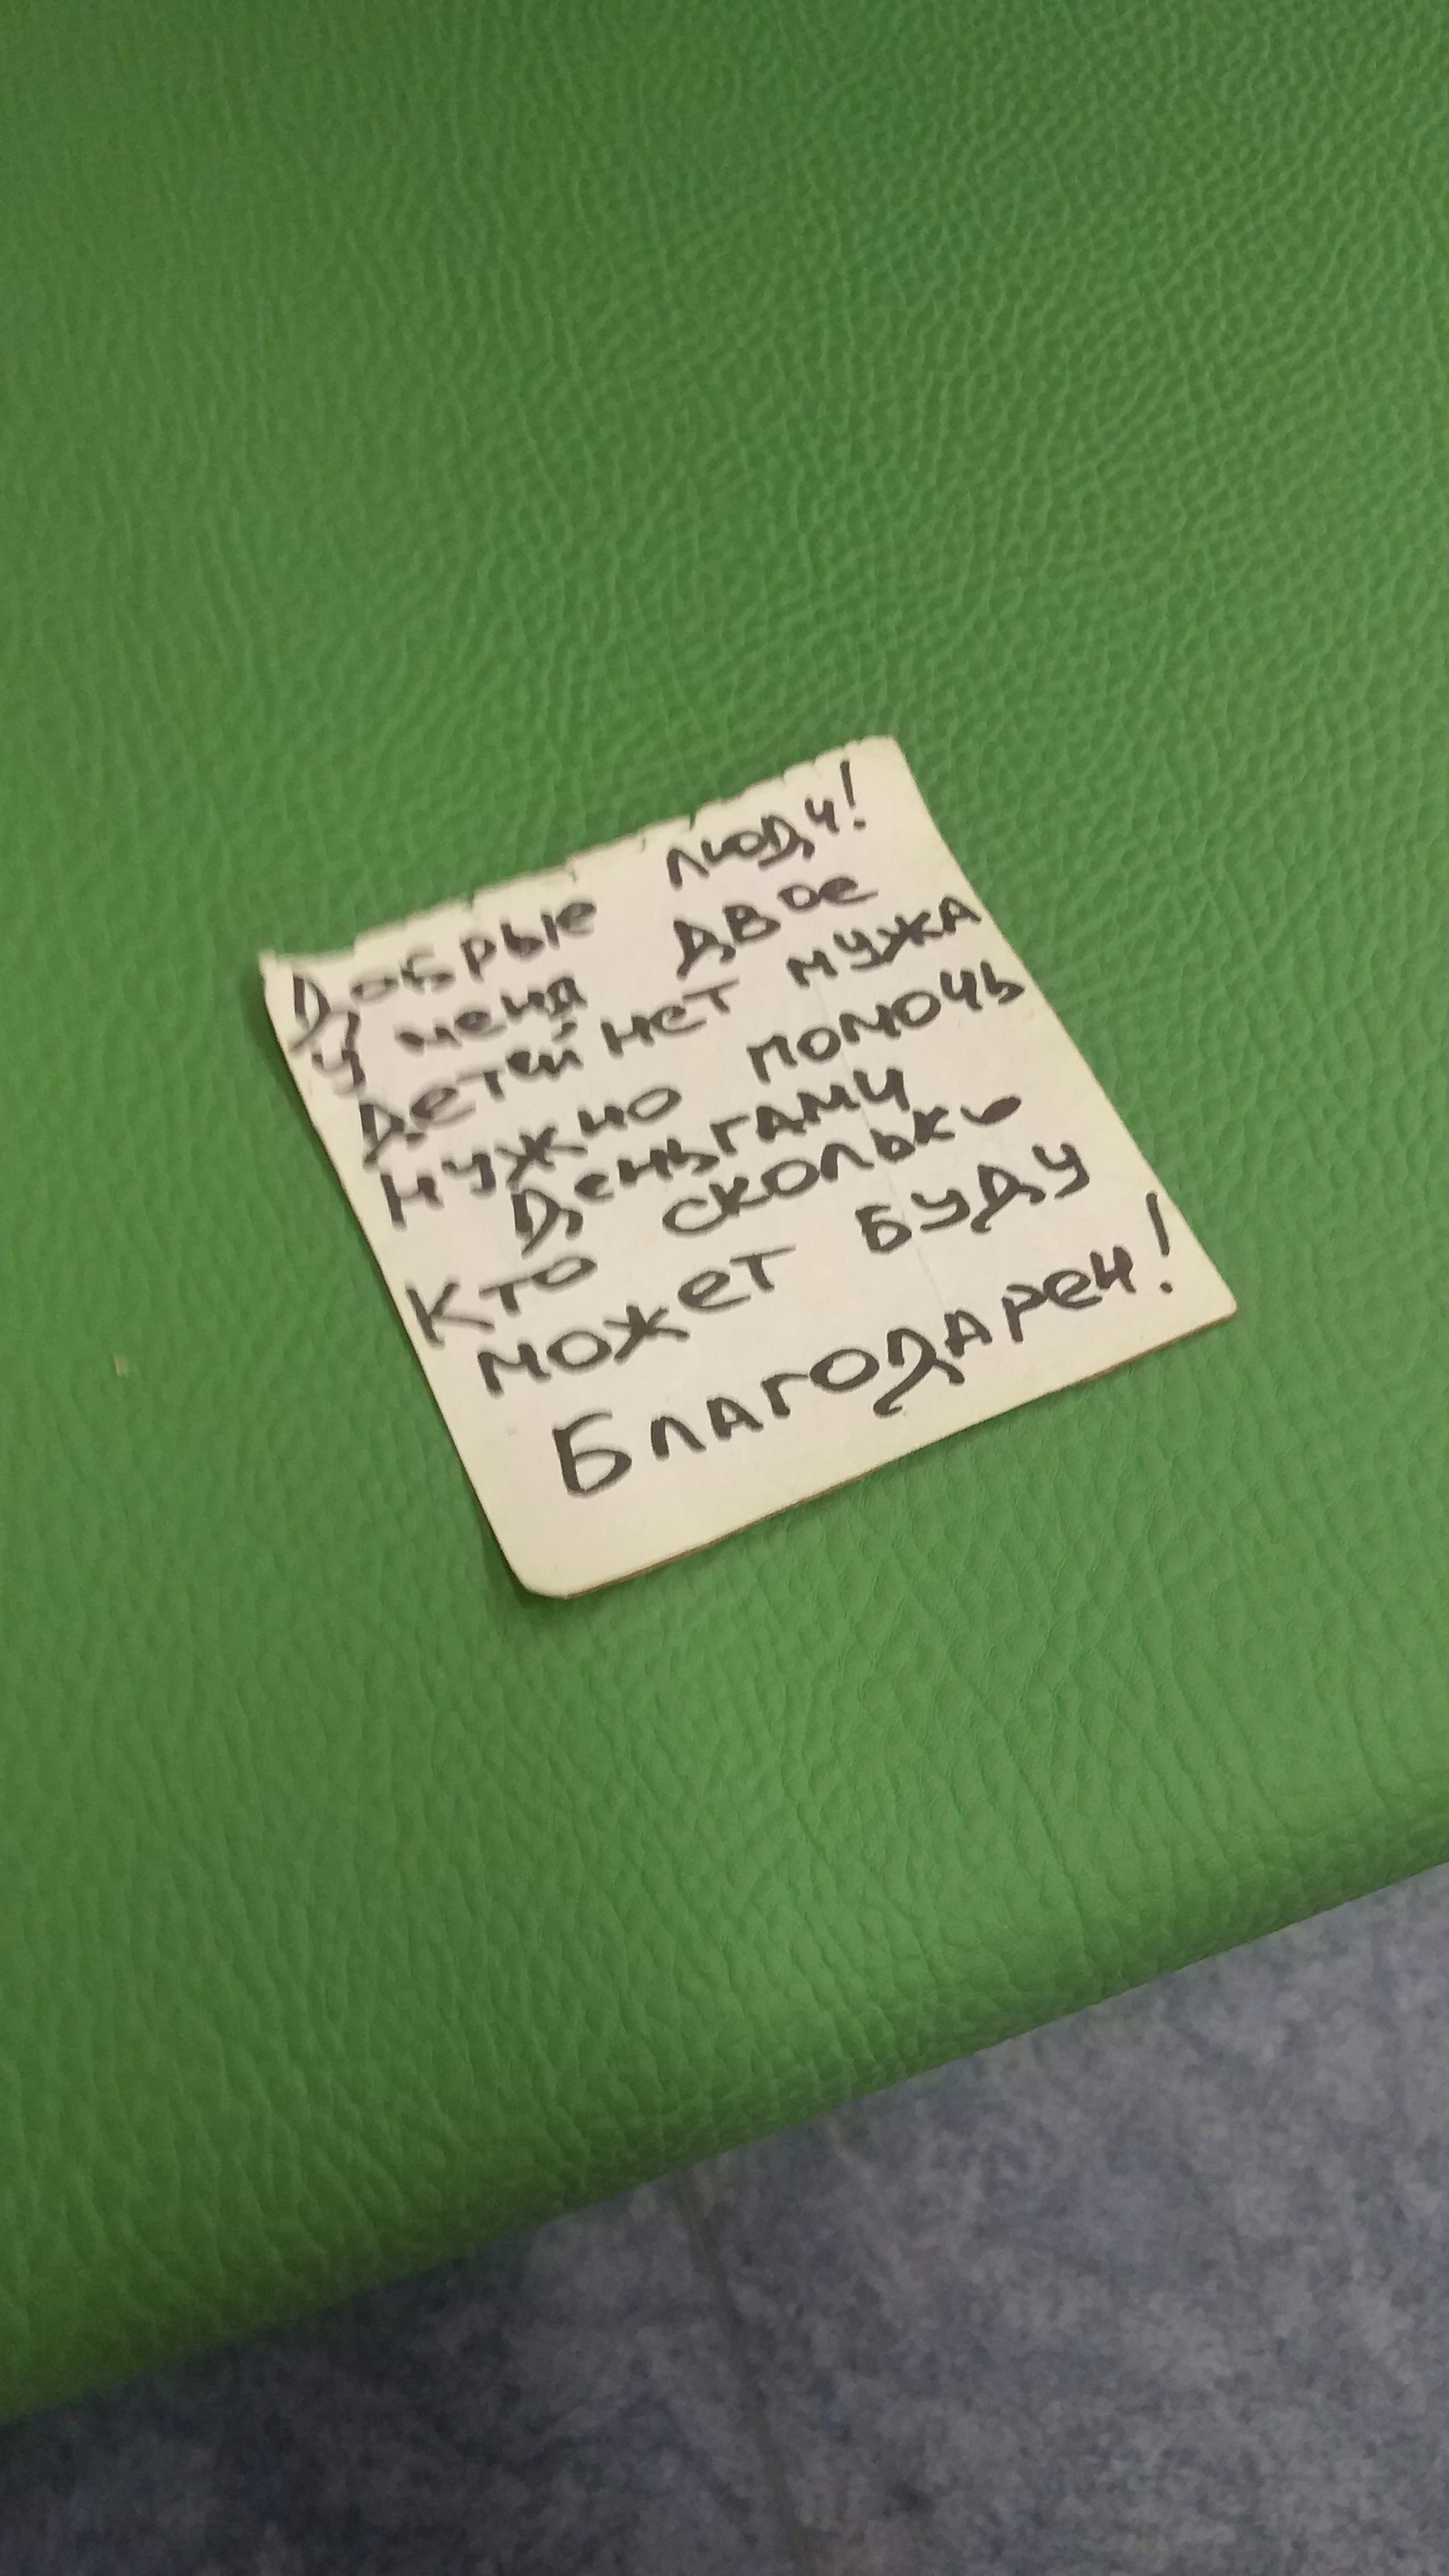 Добрые люди!
У меня двое
детей нет мужа
нужно помочь
деньгами
Кто сколько
может буду
Благодарен!